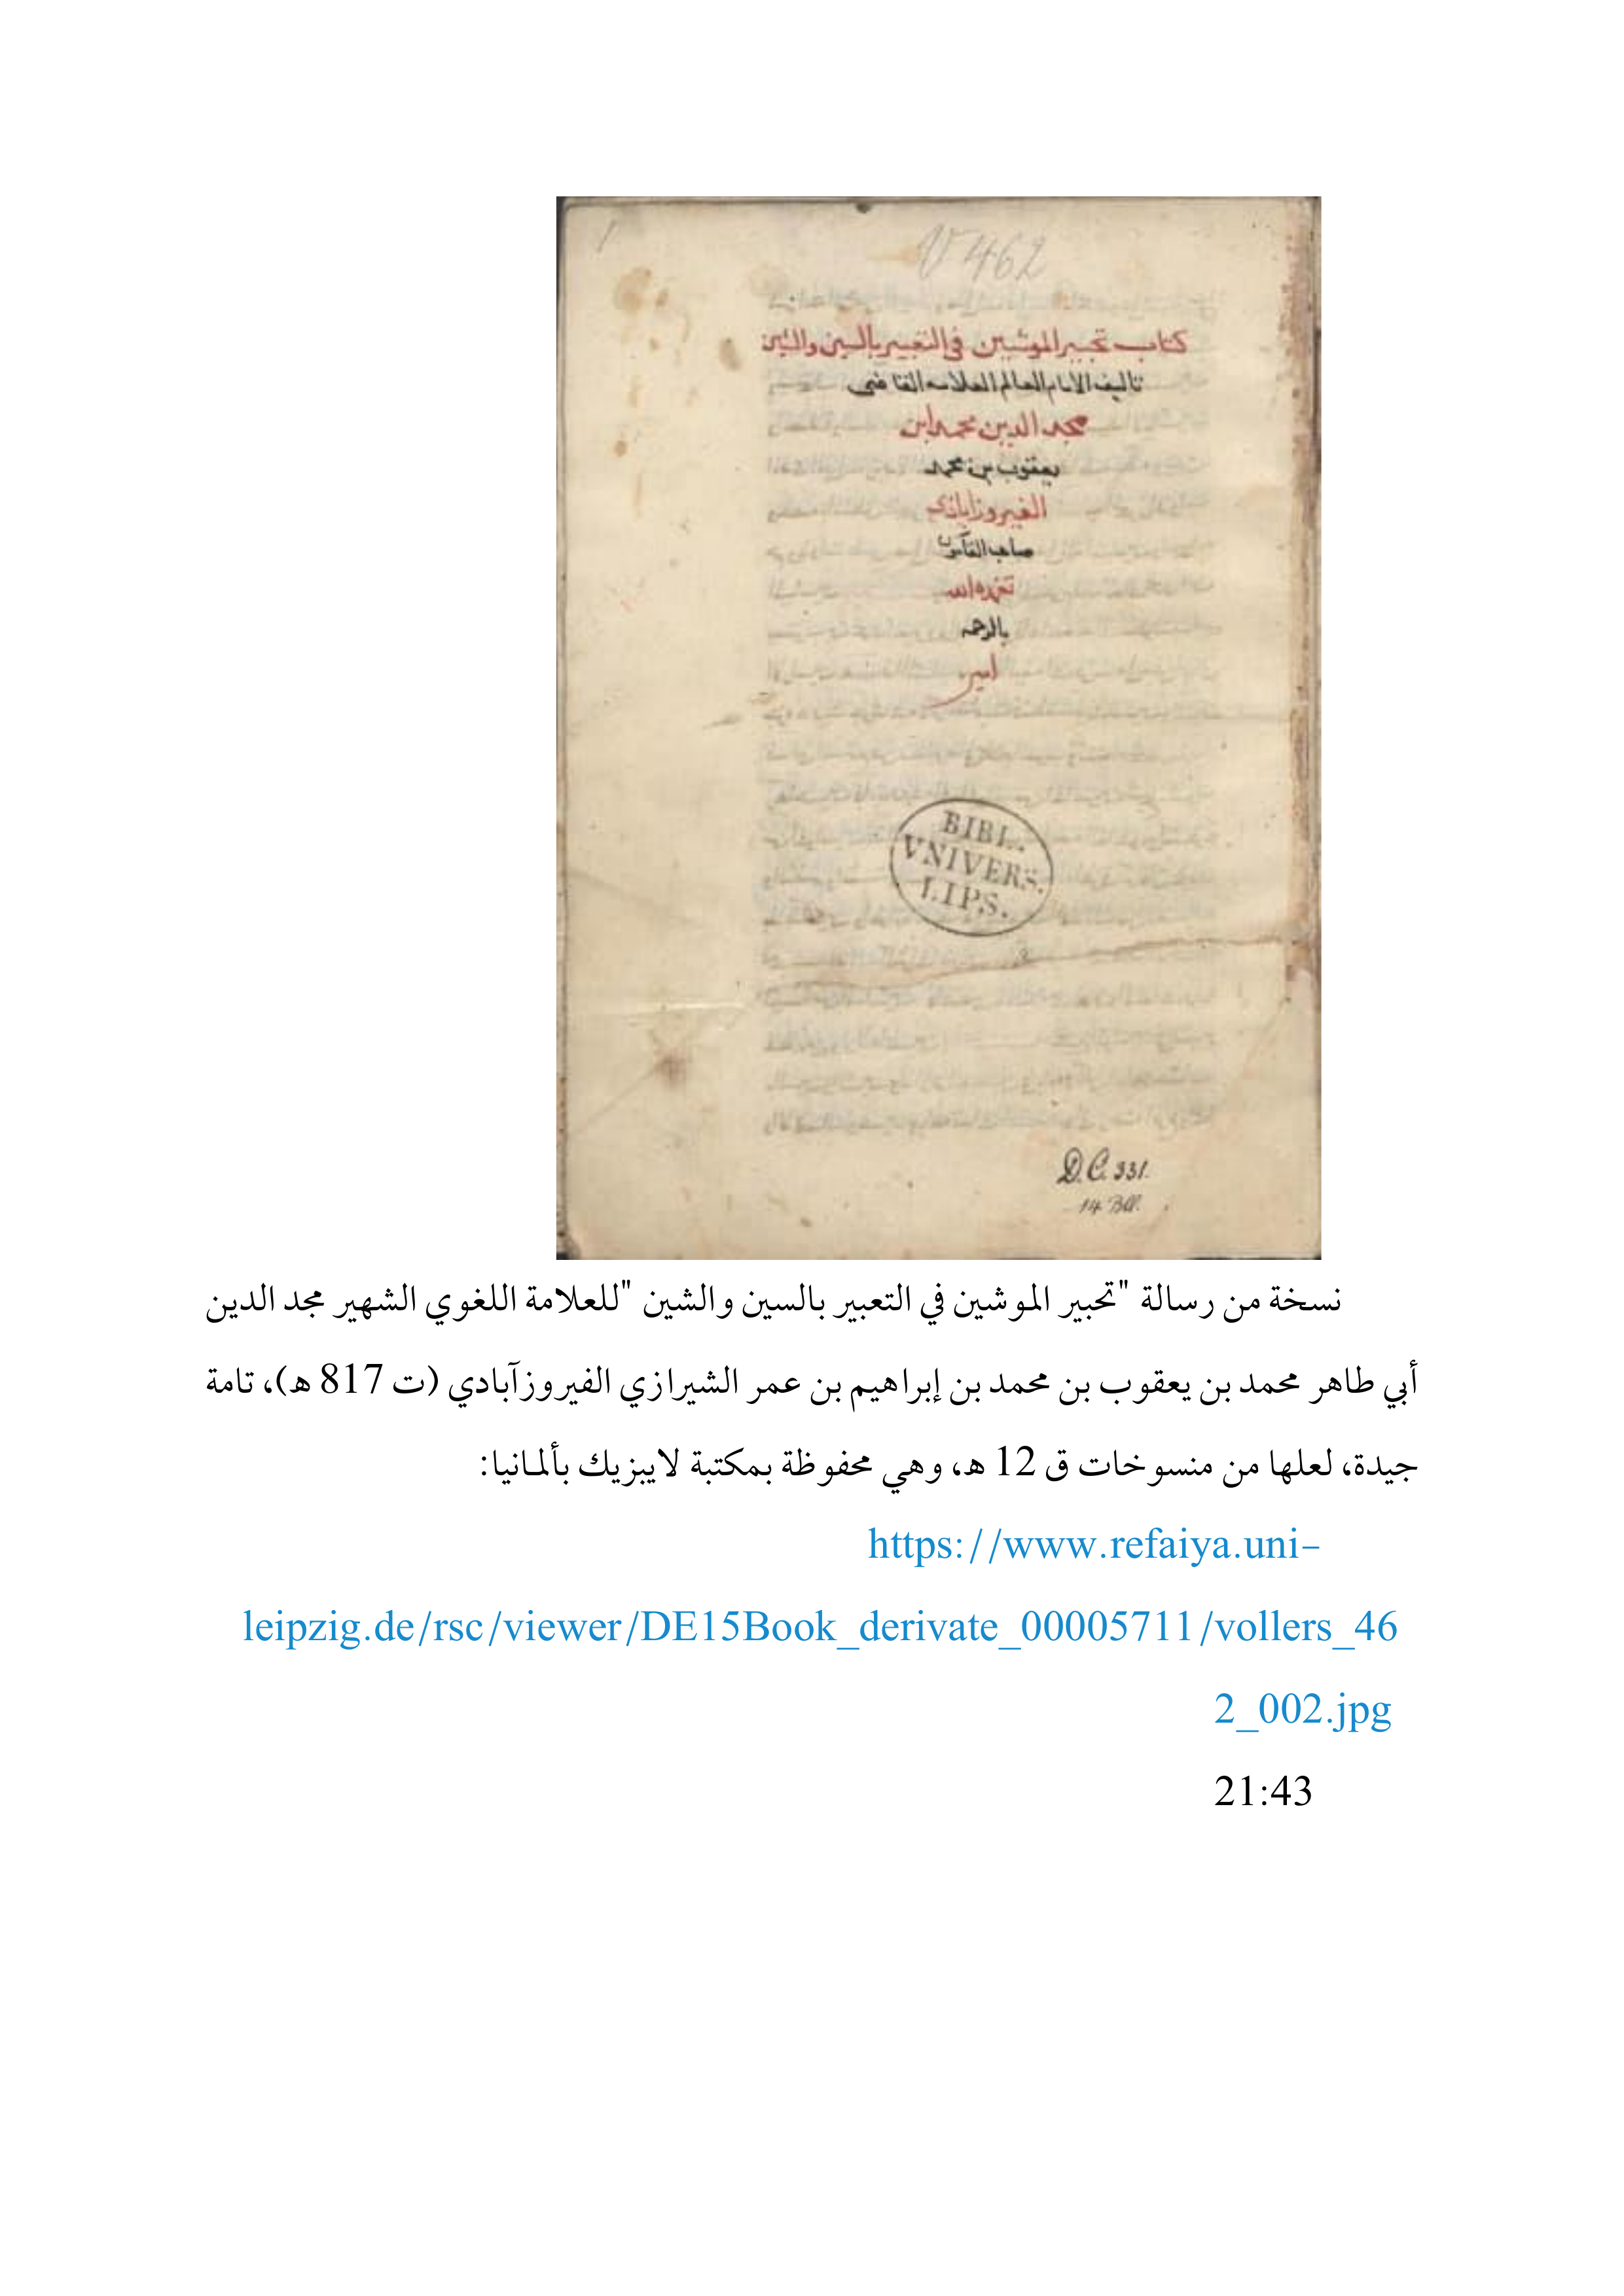 V 462
كتاب تحبير الموشين في التعبير بالسين والشين
تاليف الامام العالم العلامه القاضى
مجد الدين محمد ابن
يعقوب بن محمد
الفيروزابادى
صاحب القاموس
تغمده الله
بالرحمه
امين
BIBL.
VNIVERS.
LIPS.
D.C. 331.
14 Bll.
نسخة من رسالة "تحبير الموشين في التعبير بالسين والشين "للعلامة اللغوي الشهير مجد الدين
أبي طاهر محمد بن يعقوب بن محمد بن إبراهيم بن عمر الشيرازي الفيروزآبادي (ت 817 هـ)، تامة
جيدة، لعلها من منسوخات ق 12 هـ، وهي محفوظة بمكتبة لايبزيك بألمانيا:
https://www.refaiya.uni-
leipzig.de/rsc/viewer/DE15Book_derivate_00005711/vollers_46
2_002.jpg
21:43